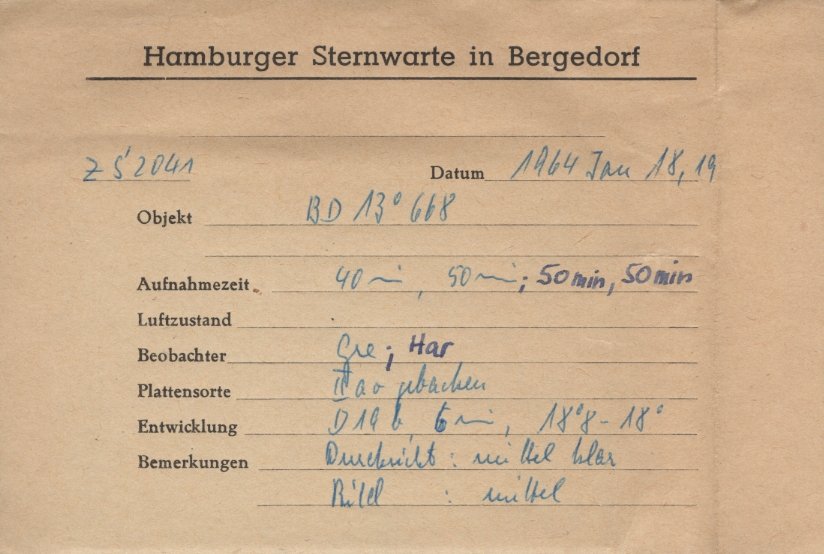 Hamburger Sternwarte in Bergedorf
ZS 2041 Datum 1964 Jan 18, 19
Objekt BD 13° 668
Aufnahmezeit 40 min, 50 min; 50 min, 50 min
Luftzustand
Beobachter Gre; Har
Plattensorte IIa o gebacken
Entwicklung D19b 6 min, 18°8 - 18°
Bemerkungen Durchsicht: mittel klar
Bild : mittel